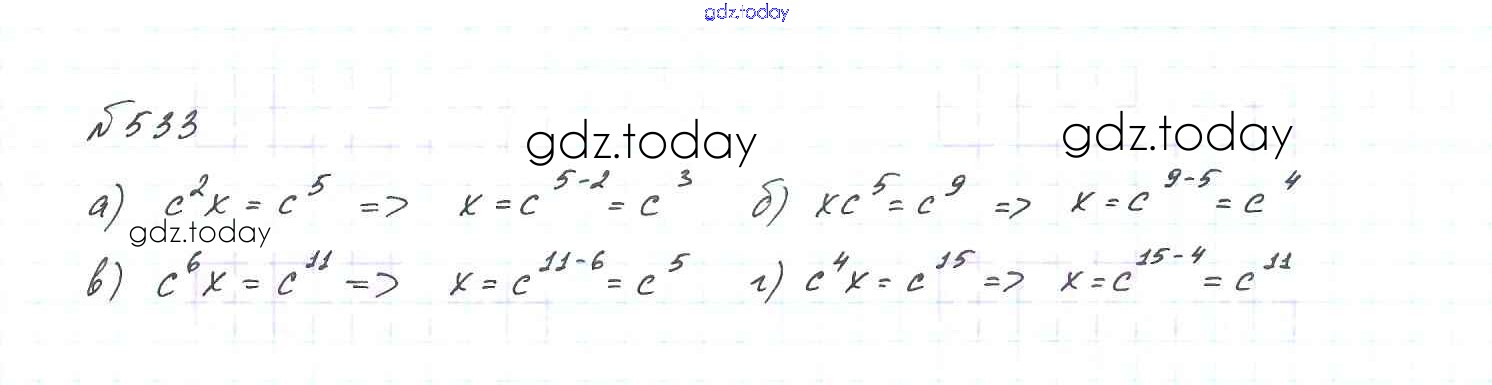 gdz.today
№533
gdz.today gdz.today
а) c²x = c⁵ => x = c⁵⁻² = c³ б) xc⁵ = c⁹ => x = c⁹⁻⁵ = c⁴
gdz.today
в) c⁶x = c¹¹ => x = c¹¹⁻⁶ = c⁵ г) c⁴x = c¹⁵ => x = c¹⁵⁻⁴ = c¹¹